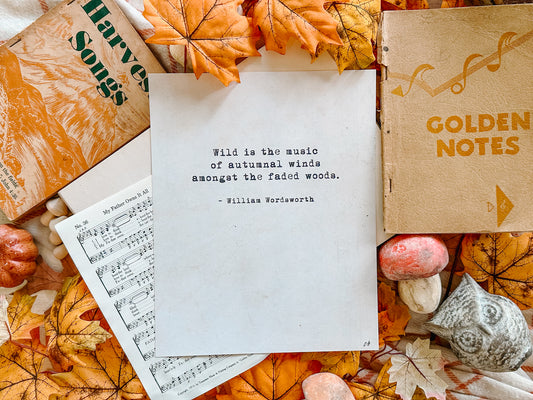 Harvest
Songs
Wild is the music
of autumnal winds
amongst the faded woods.
- William Wordsworth
GOLDEN
NOTES
No. 36
My Father Owns It All